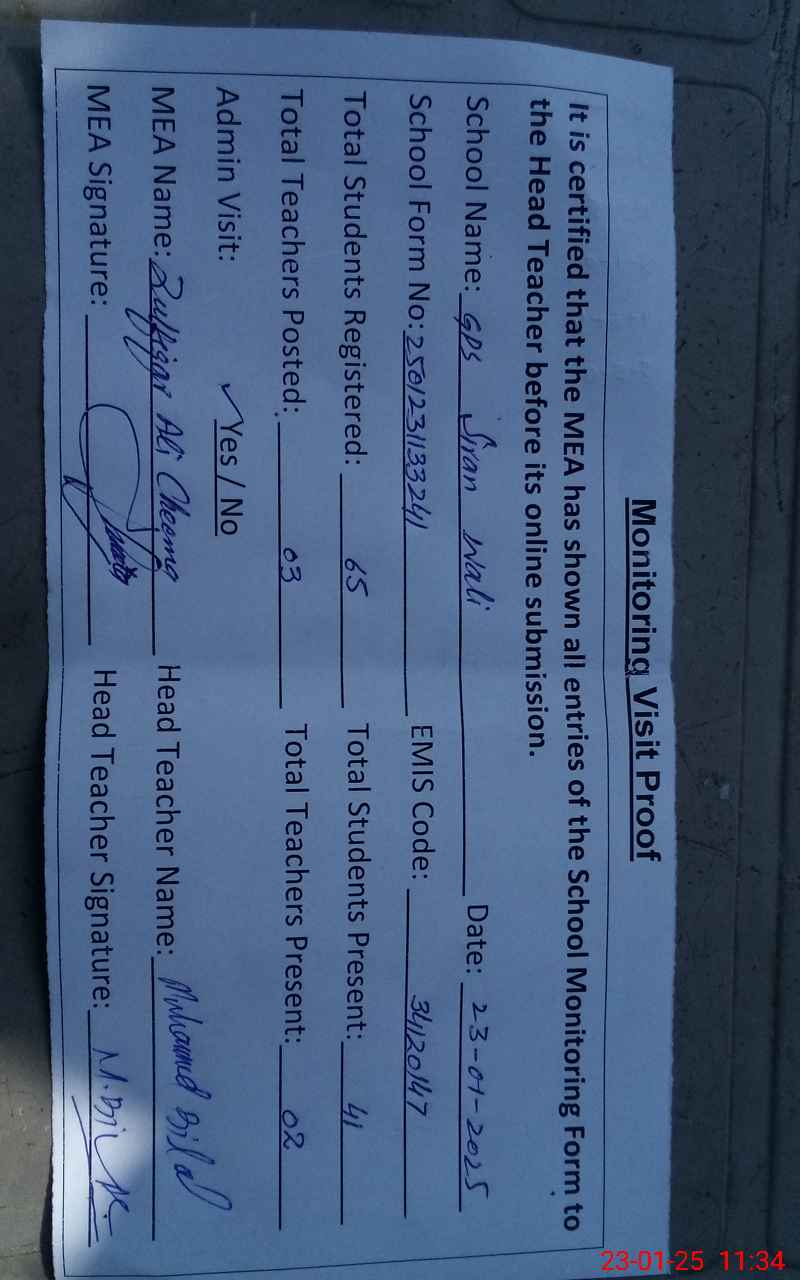 Monitoring Visit Proof
It is certified that the MEA has shown all entries of the School Monitoring Form to
the Head Teacher before its online submission.
School Name: GPS Siran Wali Date: 23-01-2025
School Form No: 250123113324 EMIS Code: 34120147
Total Students Registered: 65 Total Students Present: 41
Total Teachers Posted: 03 Total Teachers Present: 02
Admin Visit: ✓ Yes / No
MEA Name: Zulfiqar Ali Cheema Head Teacher Name: Muhammad Bilal
MEA Signature: Head Teacher Signature: M. Bilal
23-01-25 11:34